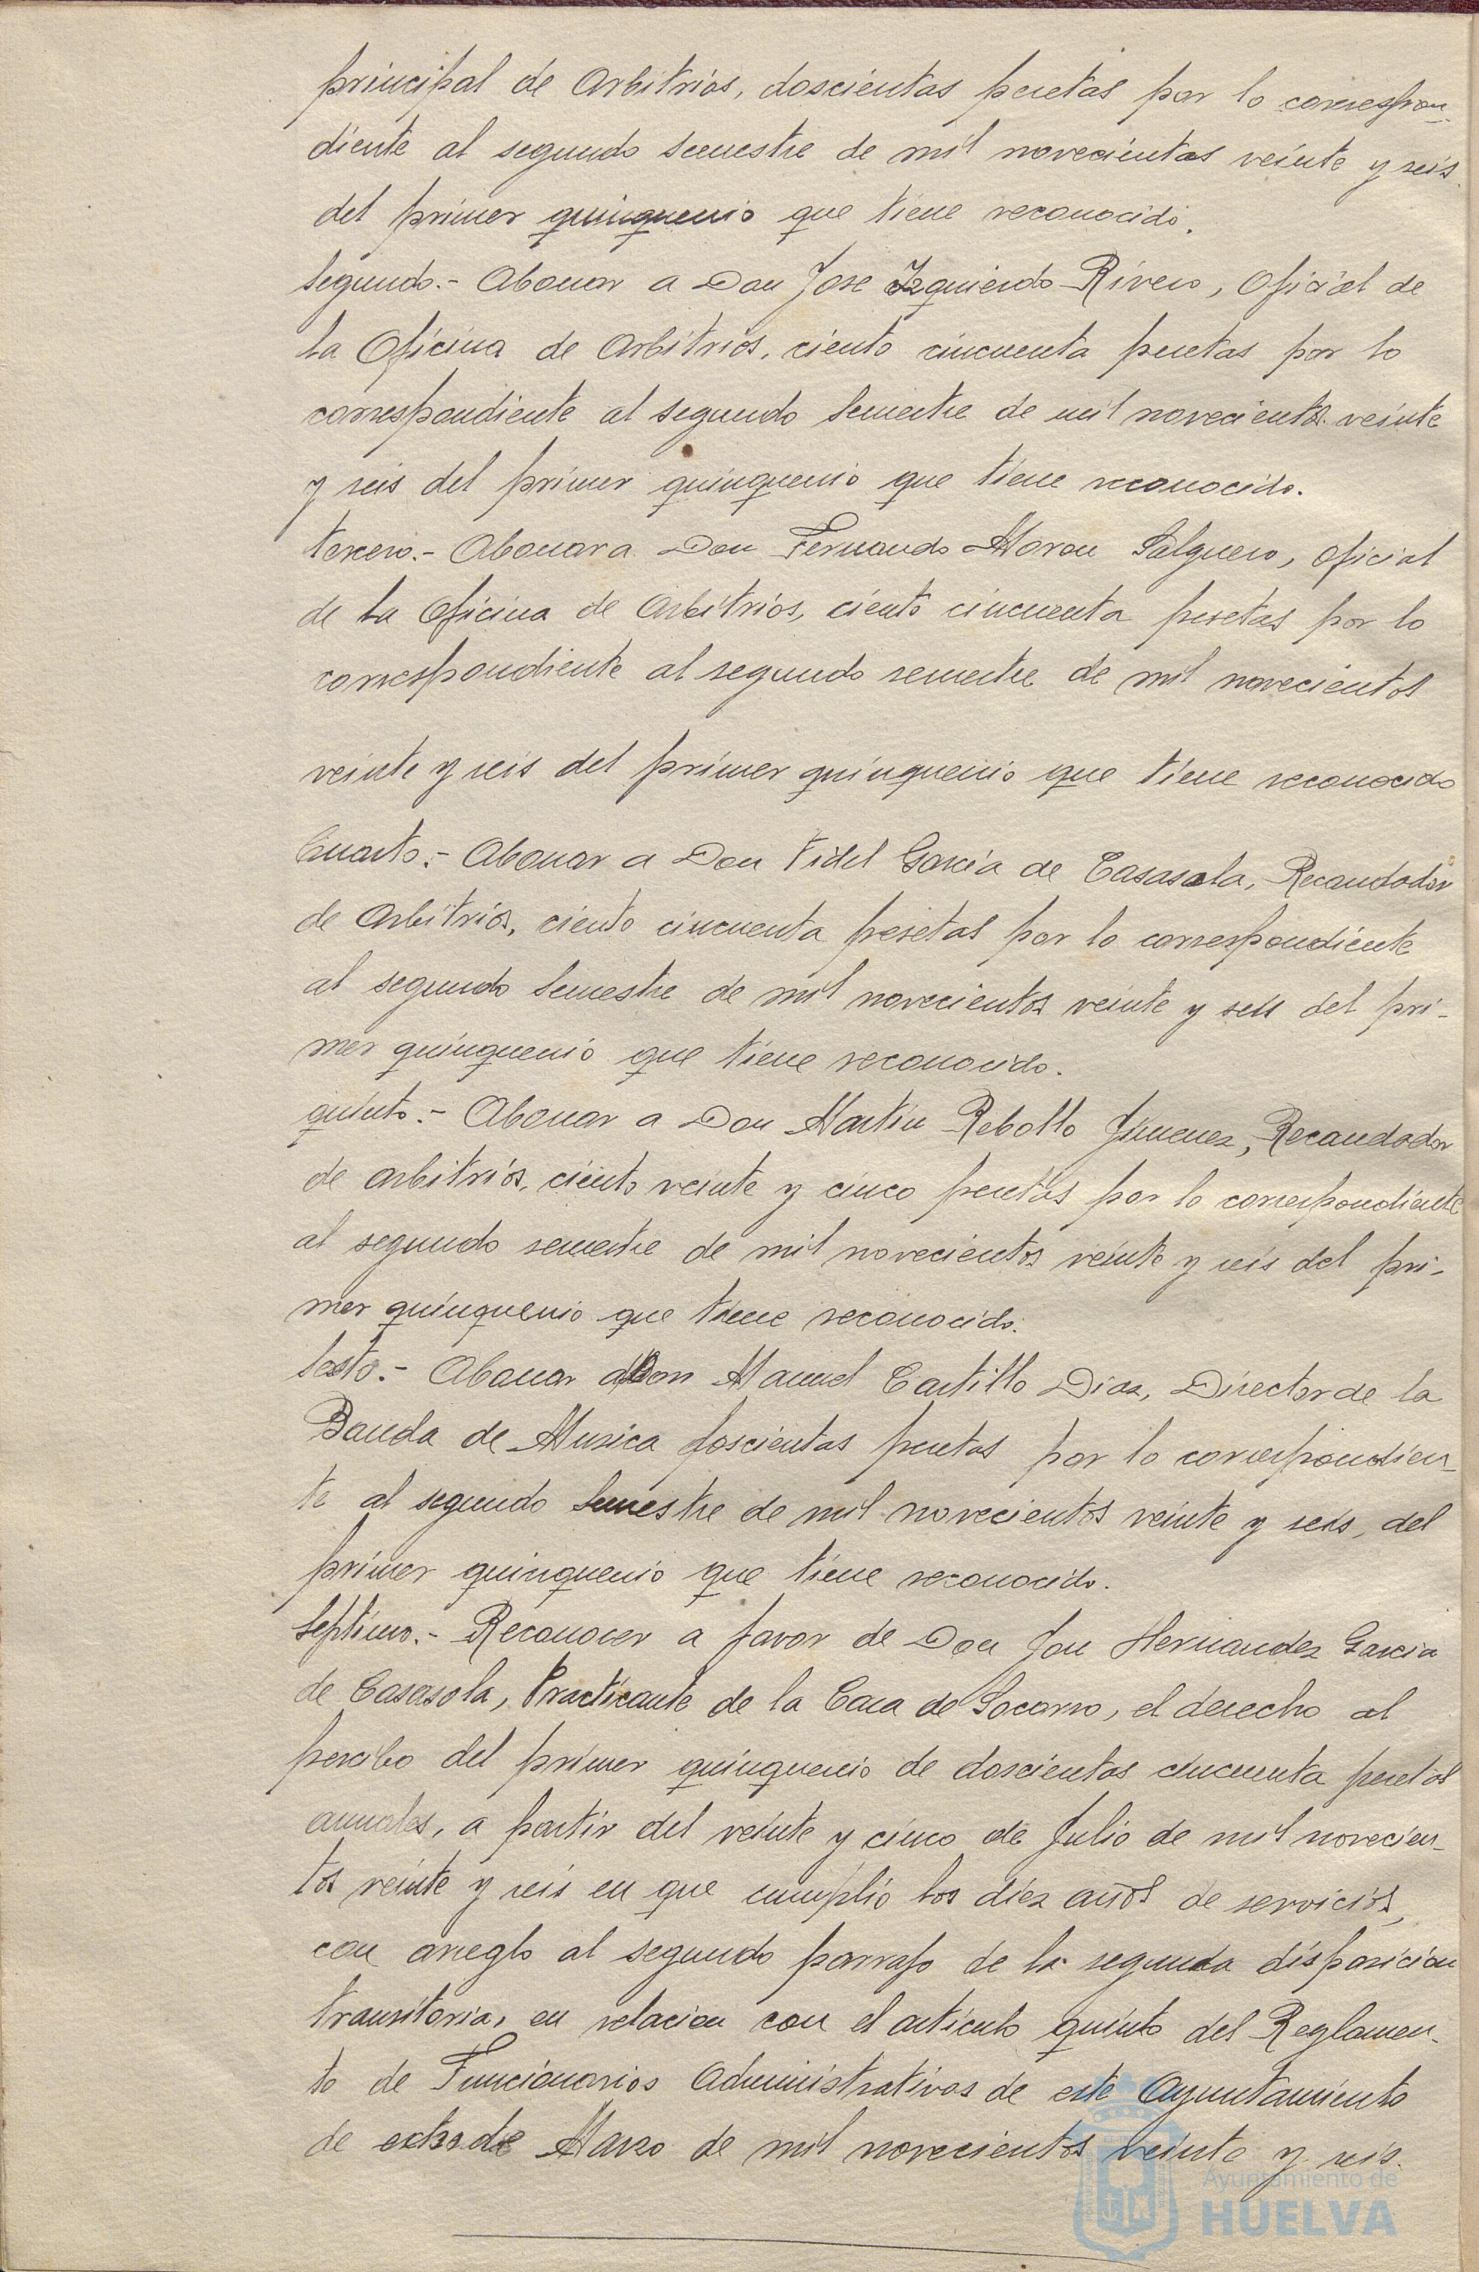 principal de Arbitrios, doscientas pesetas por lo correspon-
diente al segundo semestre de mil novecientos veinte y seis
del primer quinquenio que tiene reconocido.
Segundo.- Abonar a Don Jose Izquierdo Rivero, Oficial de
la Oficina de Arbitrios, ciento cincuenta pesetas por lo
correspondiente al segundo semestre de mil novecientos veinte
y seis del primer quinquenio que tiene reconocido.
tercero.- Abonar a Don Fernando Moron Salguero, Oficial
de la Oficina de Arbitrios, ciento cincuenta pesetas por lo
correspondiente al segundo semestre de mil novecientos
veinte y seis del primer quinquenio que tiene reconocido
Cuarto.- Abonar a Don Fidel Garcia de Casasola, Recaudador
de Arbitrios, ciento cincuenta pesetas por lo correspondiente
al segundo Semestre de mil novecientos veinte y seis del pri-
mer quinquenio que tiene reconocido.
quinto.- Abonar a Don Martin Rebollo Jimenez, Recaudador
de arbitrios, ciento veinte y cinco pesetas por lo correspondiente
al segundo semestre de mil novecientos veinte y seis del pri-
mer quinquenio que tiene reconocido.
Sesto.- Abonar a Don Manuel Castillo Diaz, Director de la
Banda de Musica doscientas pesetas por lo correspondien-
te al segundo Semestre de mil novecientos veinte y seis, del
primer quinquenio que tiene reconocido.
Septimo.- Reconocer a favor de Don Jose Hernandez Garcia
de Casasola, Practicante de la Casa de Socorro, el derecho al
percibo del primer quinquenio de doscientas cincuenta pesetas
anuales, a partir del veinte y cinco de Julio de mil novecien-
tos veinte y seis en que cumplio los diez años de servicios,
con arreglo al segundo parrafo de la segunda disposicion
transitoria, en relacion con el articulo quinto del Reglamen-
to de Funcionarios Administrativos de este Ayuntamiento
de ocho de Marzo de mil novecientos veinte y seis.
Ayuntamiento de
HUELVA